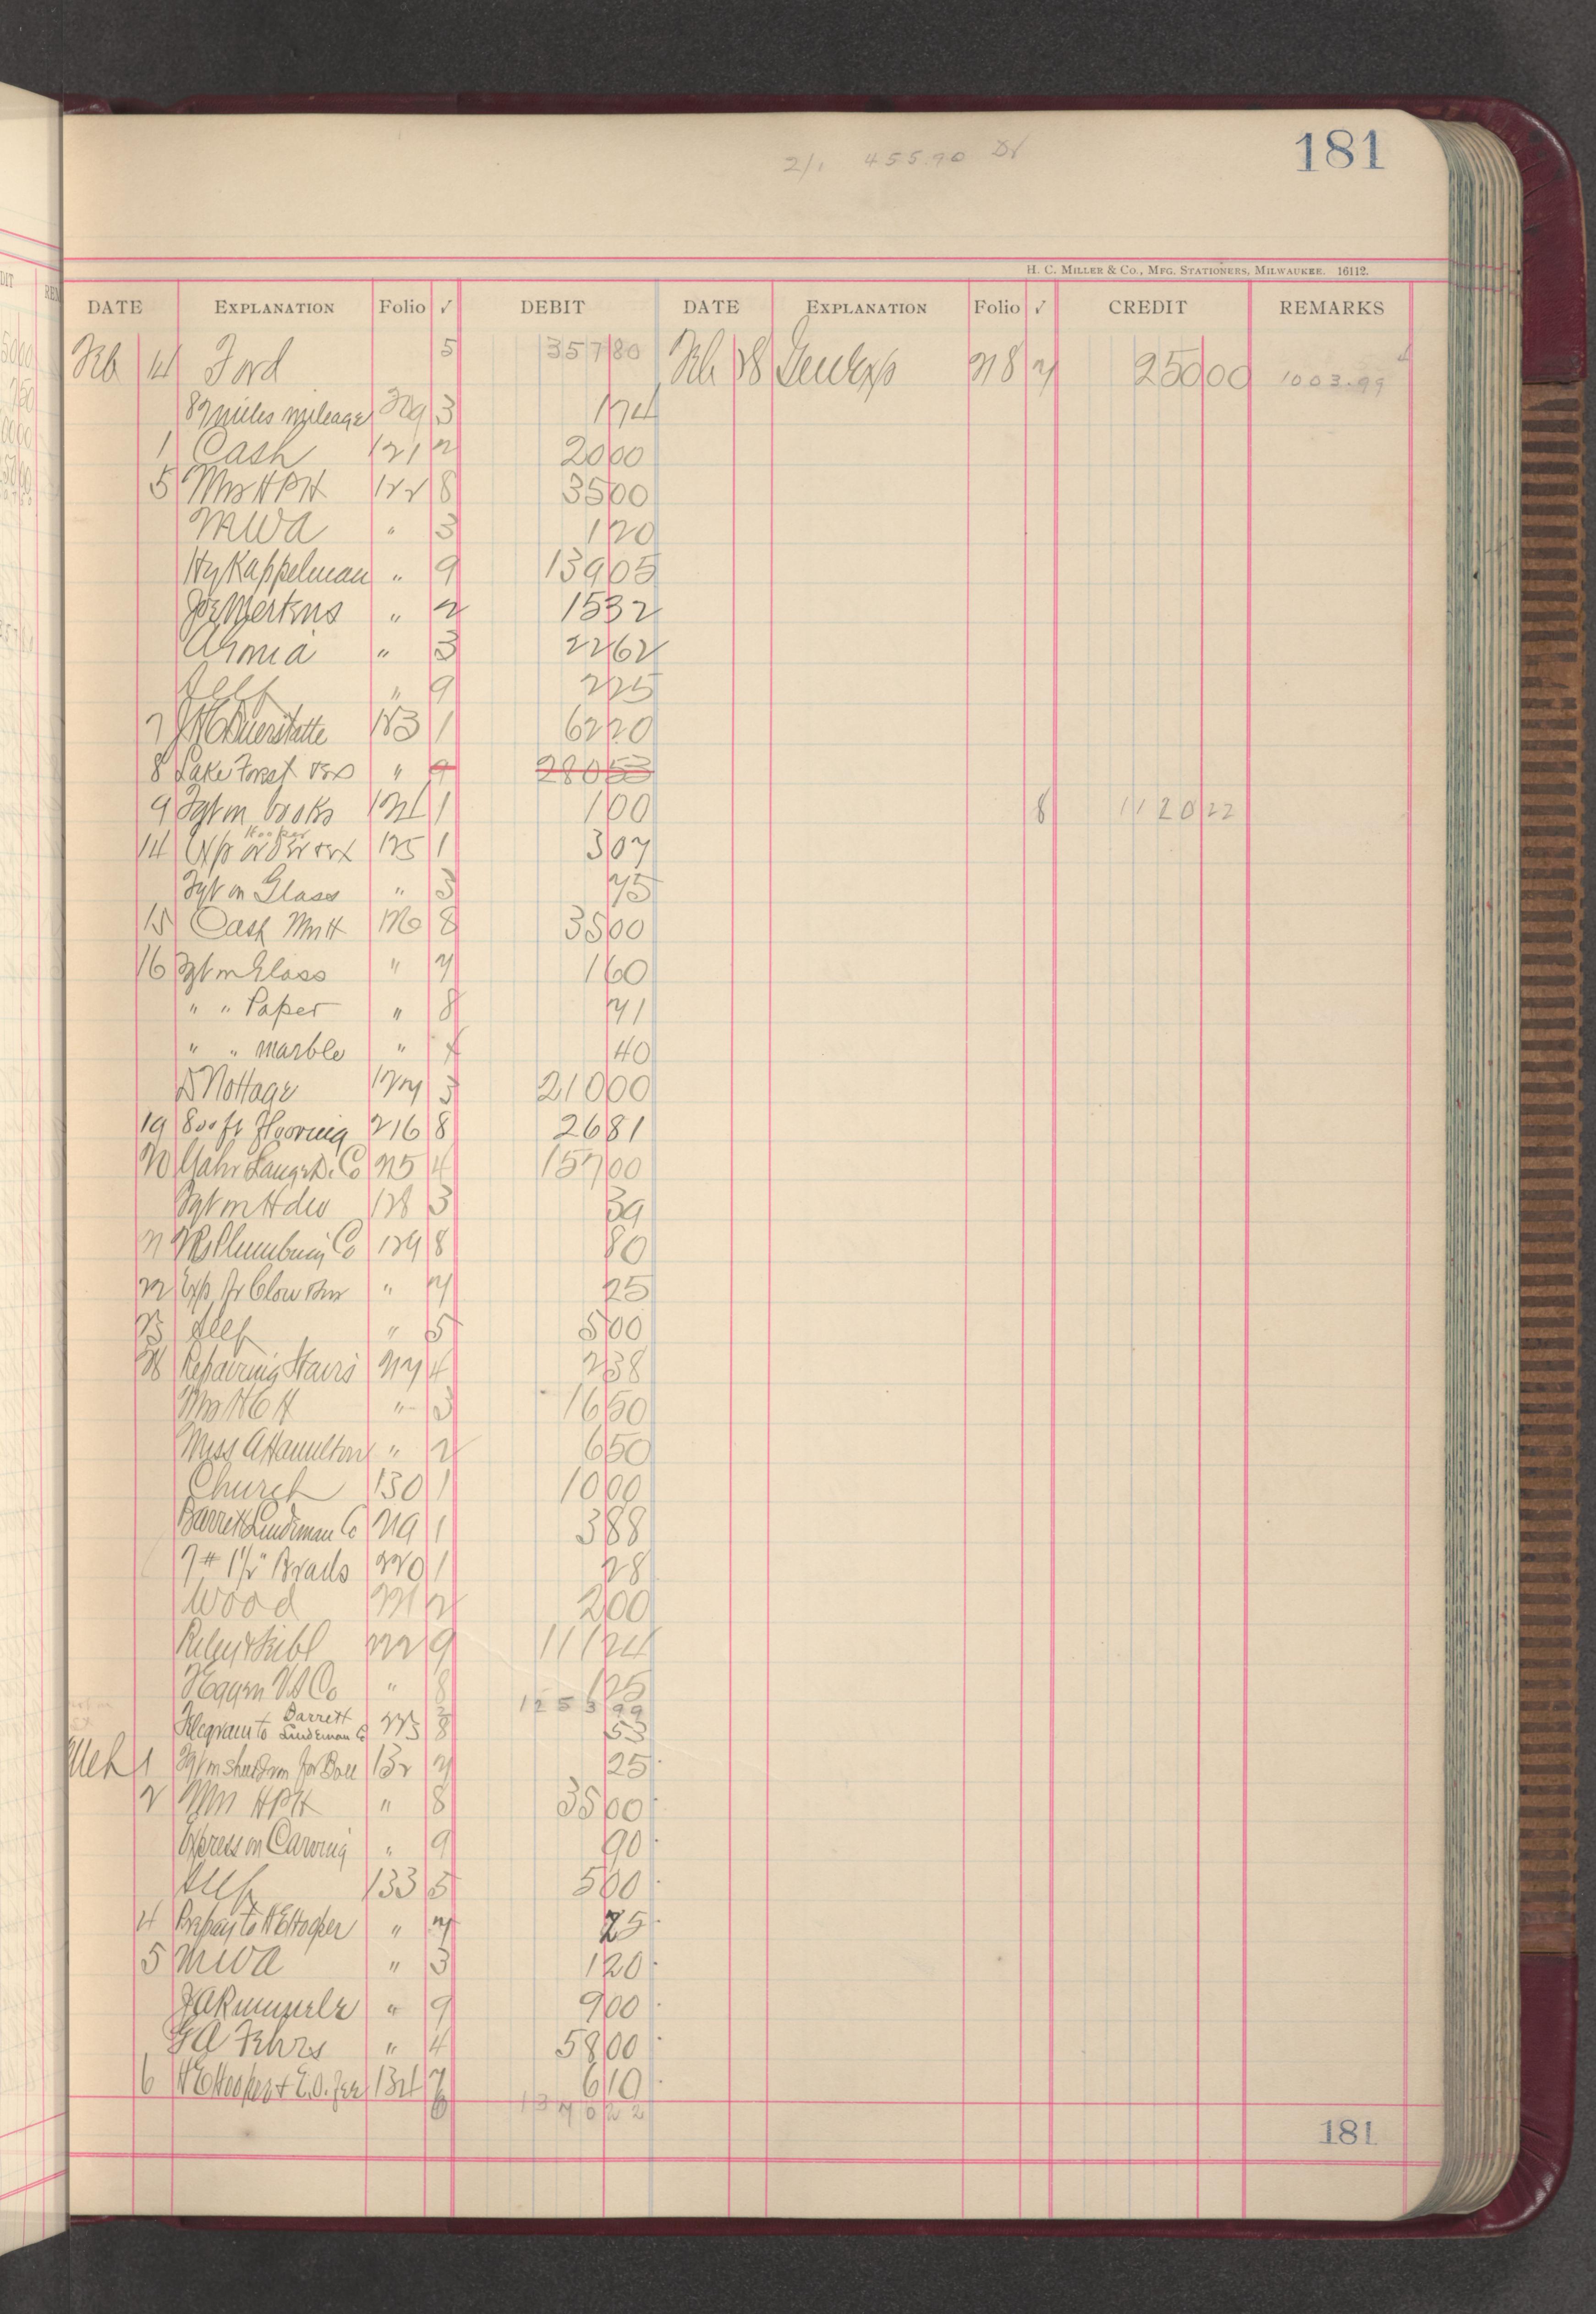 181
2/1 455.90 Dr
H. C. MILLER & CO., MFG. STATIONERS, MILWAUKEE. 16112.
DATE EXPLANATION Folio √ DEBIT DATE EXPLANATION Folio √ CREDIT REMARKS
Feb 14 Ford 5 357 80 Feb 28 218 7 250 00 1003.99
87 miles mileage 3 1 74
1 Cash 121 2 20 00
5 Mrs HPH 122 8 35 00
MWA " 3 1 20
Hy Kappelman " 9 139 05
Joe Mertens " 2 15 32
" 3 22 62
Self " 9 2 25
7 123 1 62 20
8 Lake Forest " 9 280 53
9 Fgt on books 124 1 1 00 8 1120 22
14 Exp Hooper 125 1 3 07
Fgt on Glass " 3 75
15 Cash Mrs H 126 8 35 00
16 Fgt on Glass " 7 1 60
" " Paper " 8 71
" " marble " 40
Nottage 127 3 210 00
19 800 ft Flooring 216 8 26 81
20 Co 4 157 00
Fgt on Hdw 128 3 39
21 Plumbing Co 129 8 80
22 Exp " 7 25
23 Self " 5 5 00
28 Repairing Stairs 217 4 2 38
Mrs H C H " 3 16 50
Miss A Hamilton " 2 6 50
Church 130 1 10 00
Barrett Lindeman Co 219 1 3 88
7# 1½" Brads 220 1 28
Wood 221 2 2 00
222 9 111 24
Co " 8 1 25
1253 99
Telegram to Barrett Lindeman Co 223 8 53
Mch 1 Fgt on 132 7 25
2 Mrs HPH " 8 35 00
Express on Carving " 9 90
Self 133 5 5 00
4 Prepay to H E Hooper " 7 25
5 MWA " 3 1 20
" 9 9 00
G A Fehrs " 4 58 00
6 H E Hooper + 134 7 6 10
6 1370 22
181